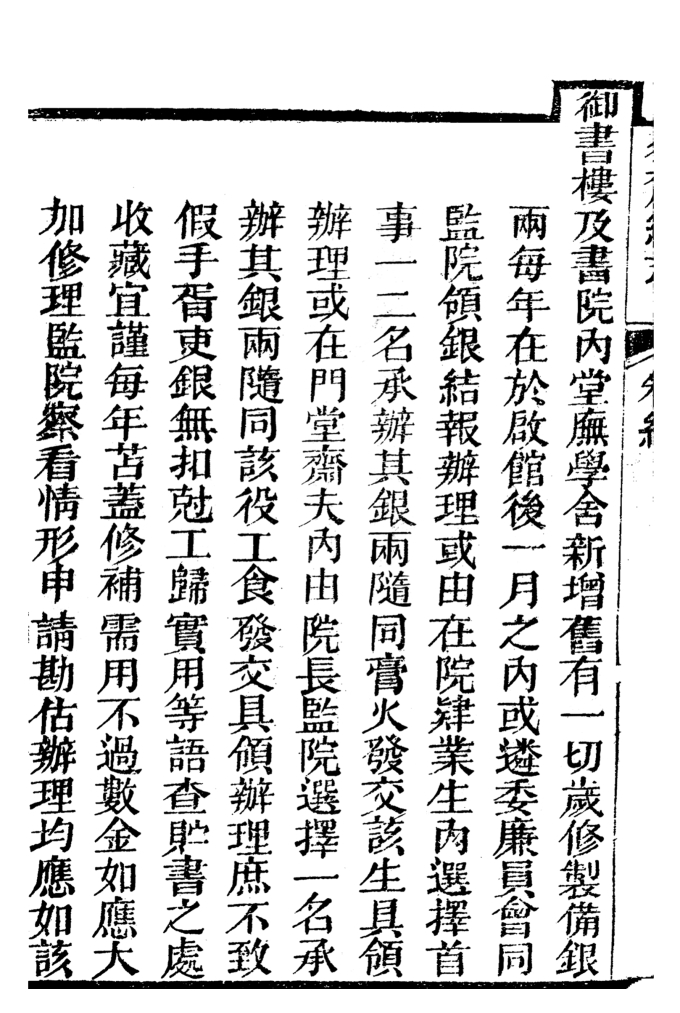 御書樓及書院內堂廡學舍新增舊有一切歲修製備銀
兩每年在於啟館後一月之內或遴委廉員會同
監院領銀結報辦理或由在院肄業生內選擇首
事一二名承辦其銀兩隨同膏火發交該生具領
辦理或在門堂齋夫內由院長監院選擇一名承
辦其銀兩隨同該役工食發交具領辦理庶不致
假手胥吏銀無扣尅工歸實用等語查貯書之處
收藏宜謹每年苫蓋修補需用不過數金如應大
加修理監院察看情形申請勘估辦理均應如該